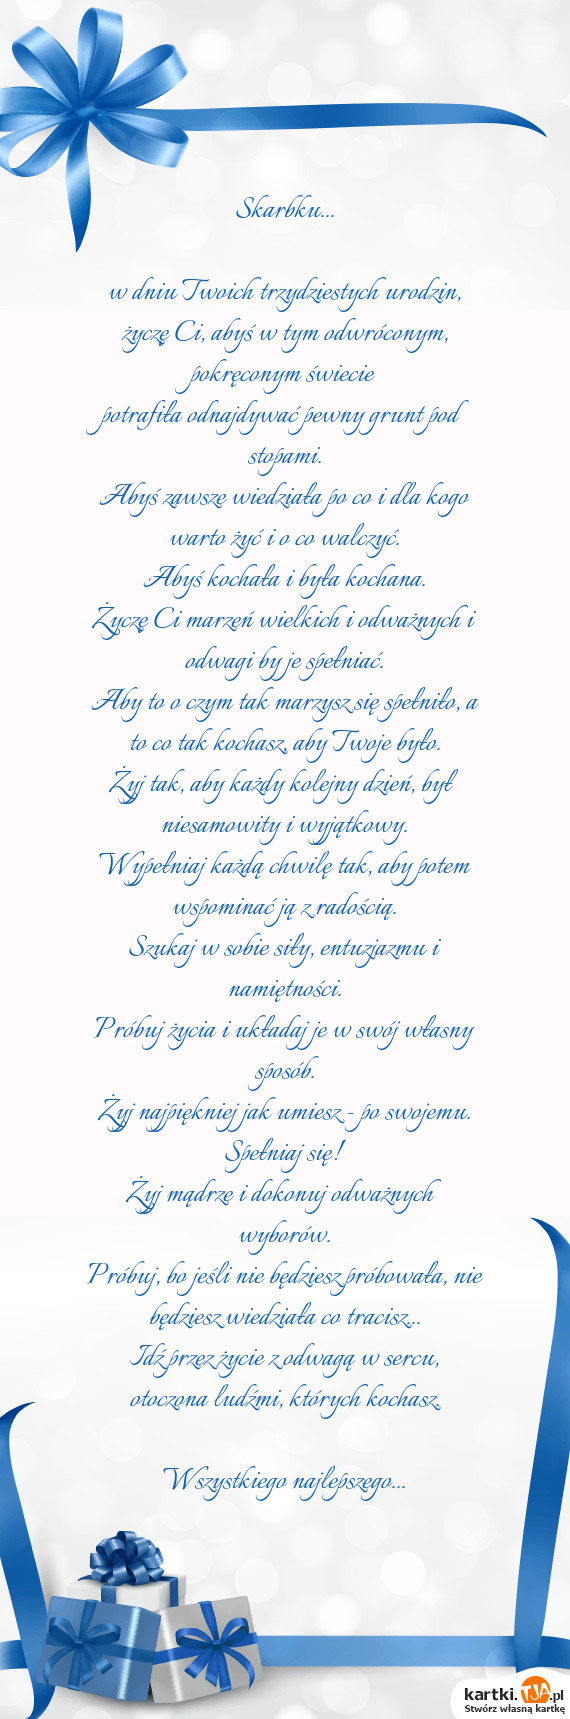 Skarbku...
w dniu Twoich trzydziestych urodzin,
życzę Ci, abyś w tym odwróconym,
pokręconym świecie
potrafiła odnajdywać pewny grunt pod
stopami.
Abyś zawsze wiedziała po co i dla kogo
warto żyć i o co walczyć.
Abyś kochała i była kochana.
Życzę Ci marzeń wielkich i odważnych i
odwagi by je spełniać.
Aby to o czym tak marzysz się spełniło, a
to co tak kochasz, aby Twoje było.
Żyj tak, aby każdy kolejny dzień, był
niesamowity i wyjątkowy.
Wypełniaj każdą chwilę tak, aby potem
wspominać ją z radością.
Szukaj w sobie siły, entuzjazmu i
namiętności.
Próbuj życia i układaj je w swój własny
sposób.
Żyj najpiękniej jak umiesz - po swojemu.
Spełniaj się!
Żyj mądrze i dokonuj odważnych
wyborów.
Próbuj, bo jeśli nie będziesz próbowała, nie
będziesz wiedziała co tracisz...
Idź przez życie z odwagą w sercu,
otoczona ludźmi, których kochasz.
Wszystkiego najlepszego...
kartki.TJA.pl
Stwórz własną kartkę